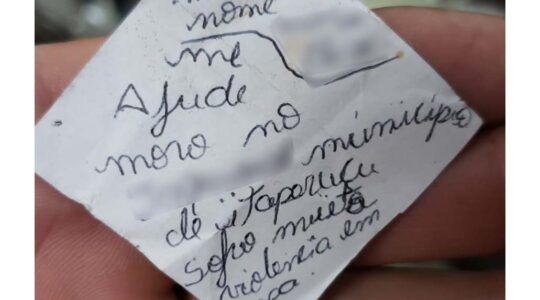 nome
me
Ajude
moro no
município
de itaparuçu
sofro muita
violencia em